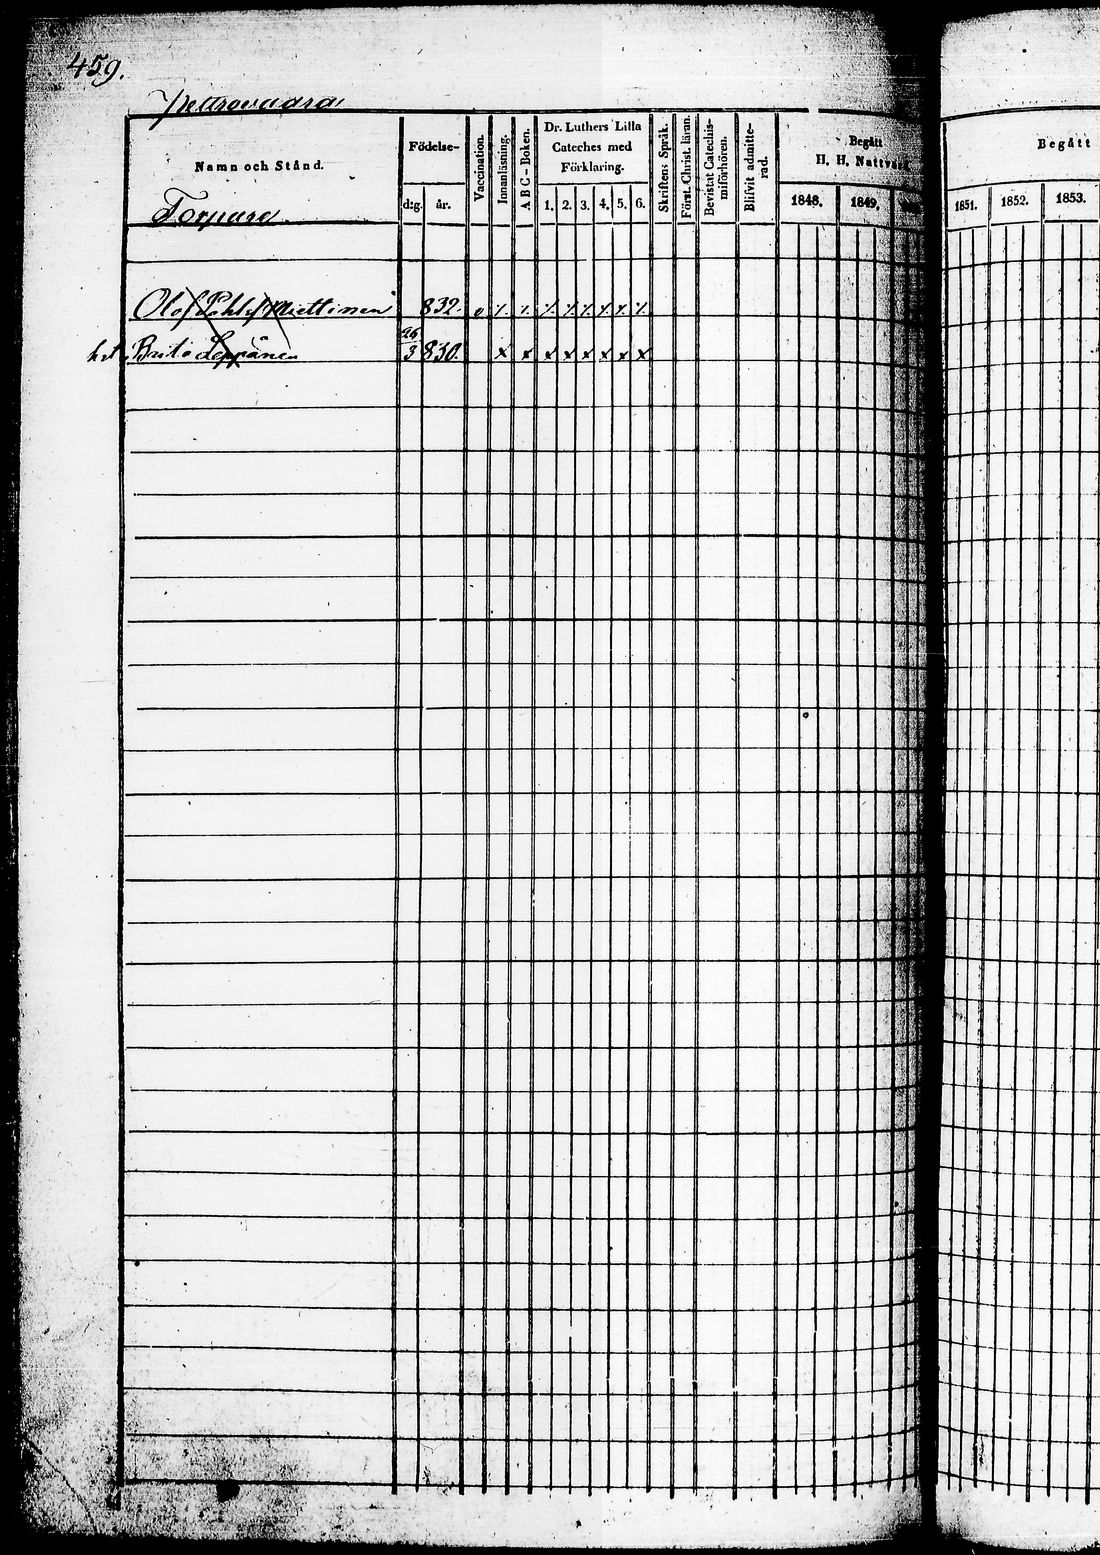 459.
Pettrovaara
Namn och Stånd.
Torpare
Födelse-
d:g. år.
Vaccination.
Innanläsning.
ABC-Boken.
Dr. Luthers Lilla
Cateches med
Förklaring.
1. 2. 3. 4. 5. 6.
Skriftens Språk.
Först. Christ. läran.
Bevistat Catechis-
miförhören.
Blifvit admitte-
rad.
Begått
H. H. Nattvard.
1848. 1849.
Begått
1851. 1852. 1853.
Olof Miettinen 832.
Brita Leppänen 26/3 830. x x x x x x x x